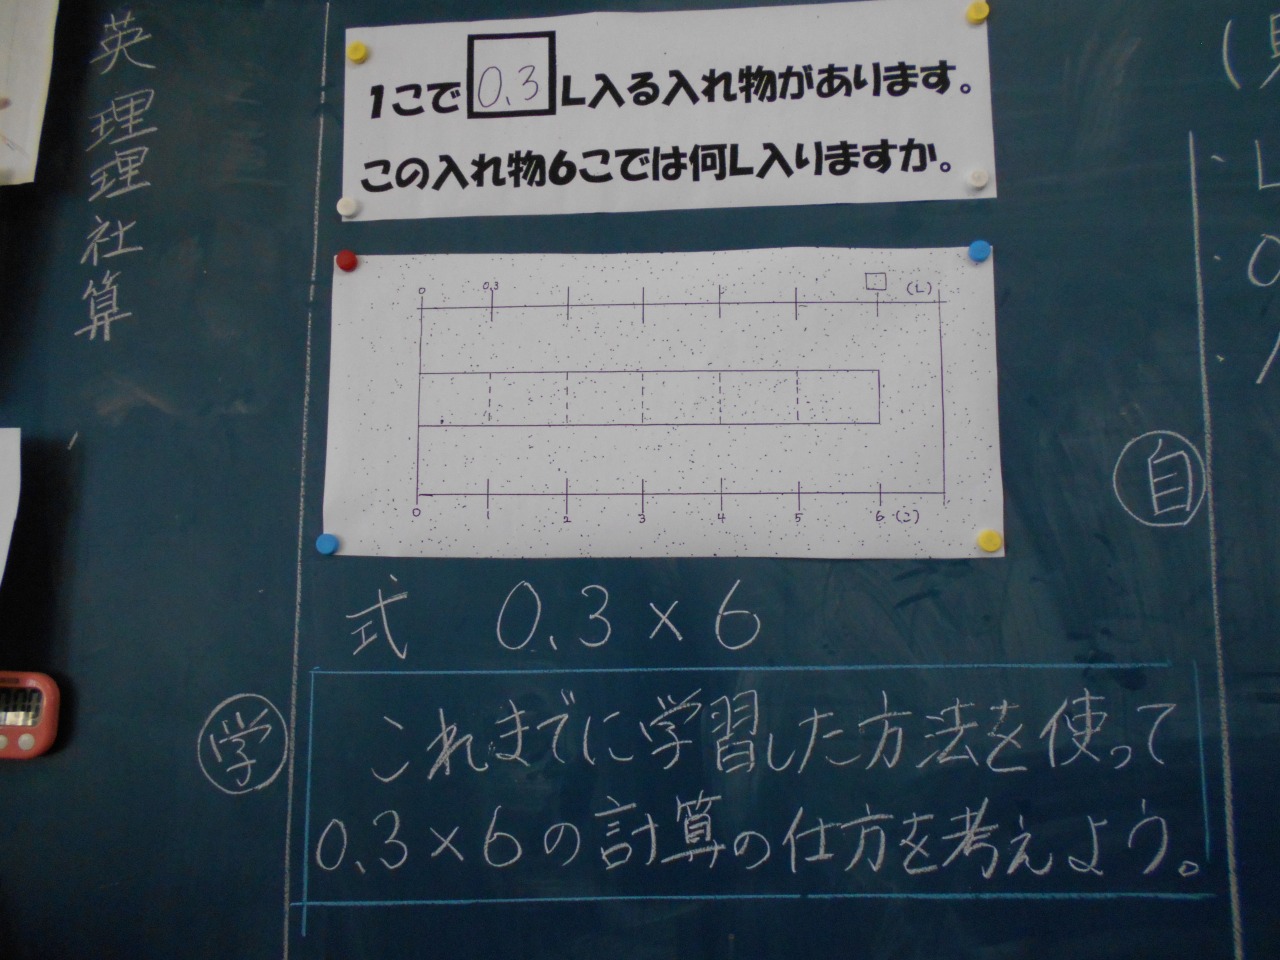 英
理
理
社
算
1こで0.3L入る入れ物があります。
この入れ物6こでは何L入りますか。
0 0.3 □ (L)
0 1 2 3 4 5 6 (こ)
式 0.3×6
学
これまでに学習した方法を使って
0.3×6の計算の仕方を考えよう。
自